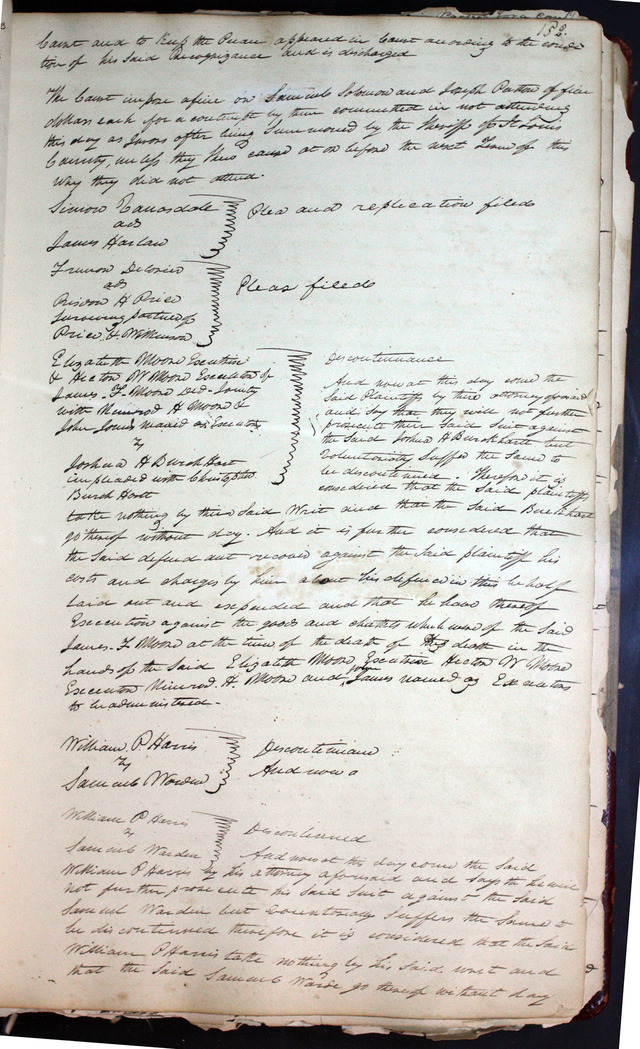 158
Court and to keep the Peace appeared in Court according to the condi
tion of his said Recognizance and is discharged
The Court impose a fine on Samuel Solomon and Joseph Patton of five
dollars each for a contempt by them committed in not attending
this day as Jurors after being summoned by the Sheriff of St Louis
County, unless they shew cause at or before the next Term of this
why they did not attend.
Simon
ads
James Harlan
Plea and replication filed
ads
Risdon H Price
Surviving partner of
Price &
Pleas filed
Elizabeth Moore Executrix
& Hector W Moore Executor of
James. F. Moore Decd. Jointly
with Nimrod H Moore &
John Jones named as Executors
vs
Joshua H Burckhart
impleaded with Christopher
Burckhartt
Discontinuance
And now at this day come the
Said Plaintiffs by their attorney aforesaid
and say that they will not further
prosecute their Said Suit against
the Said Joshua H Burckhartt but
voluntarily suffer the Same to
be discontinued. Therefore it is
considered that the Said plaintiffs
take nothing by their Said Writ and that the Said Burckhart
go thereof without day. And it is further considered that
the Said defendant recover against the Said plaintiff his
costs and charges by him about his defence in this behalf
laid out and expended and that he have thereof
Execution against the goods and chattels which were of the Said
James. F Moore at the time of the death of the death in the
hands of the Said Elizabeth Moore Executrix Hector W Moore
Executor Nimrod. H. Moore and James named as Executors
to be administered.
William. P Harris
vs
Samuel Warden
Discontinuance
And now a
William P Harris
vs
Samuel Warden
Discontinued
And now at this day come the Said
William P Harris by his attorney aforesaid and says he will
not further prosecute his Said Suit against the Said
Samuel Warden but voluntarily suffers the Same to
be discontinued therefore it is considered that the Said
William P Harris take nothing by his Said writ and
that the Said Samuel Warde go thereof without day